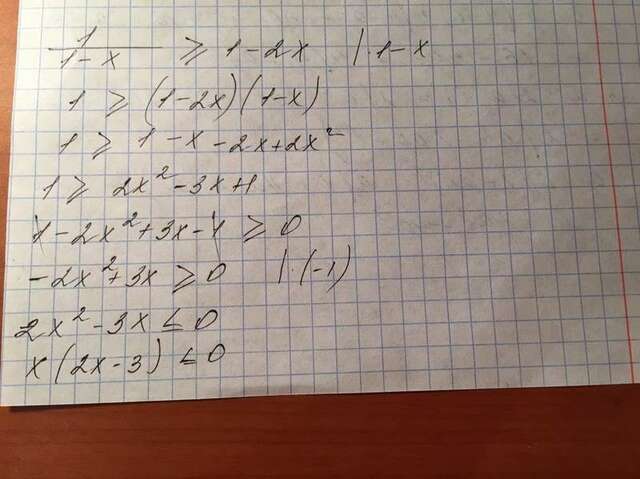 1/(1-x) ≥ 1-2x |·1-x
1 ≥ (1-2x)(1-x)
1 ≥ 1-x-2x+2x²
1 ≥ 2x²-3x+1
1-2x²+3x-1 ≥ 0
-2x²+3x ≥ 0 |·(-1)
2x²-3x ≤ 0
x(2x-3) ≤ 0